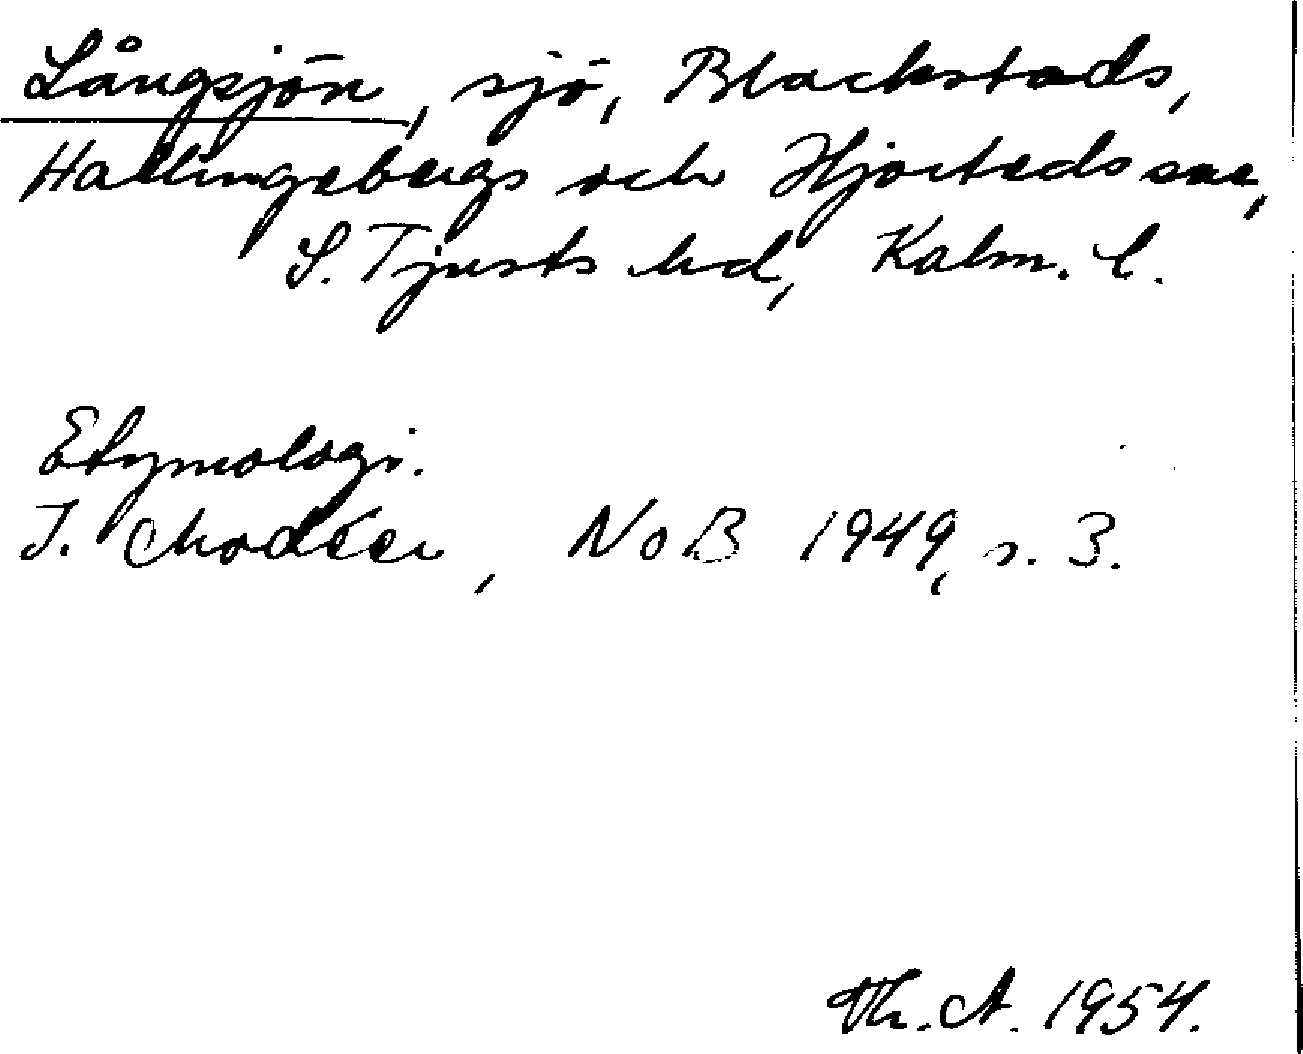 Långsjön, sjö, Blackstads,
Hallingebergs och Hjorteds snr,
S. Tjusts hd, Kalm. l.
Etymologi.
I. Modéer, NoB 1949, s. 3.
Th. A. 1954.